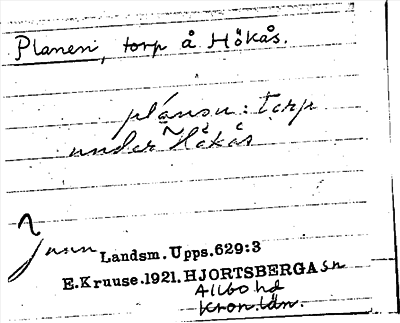 Planen, torp å Hökås.
plánsn: torp
under Hökås
Landsm. Upps. 629:3
E.Kruuse.1921. HJORTSBERGA sn
Allbo hd
Kron. län.